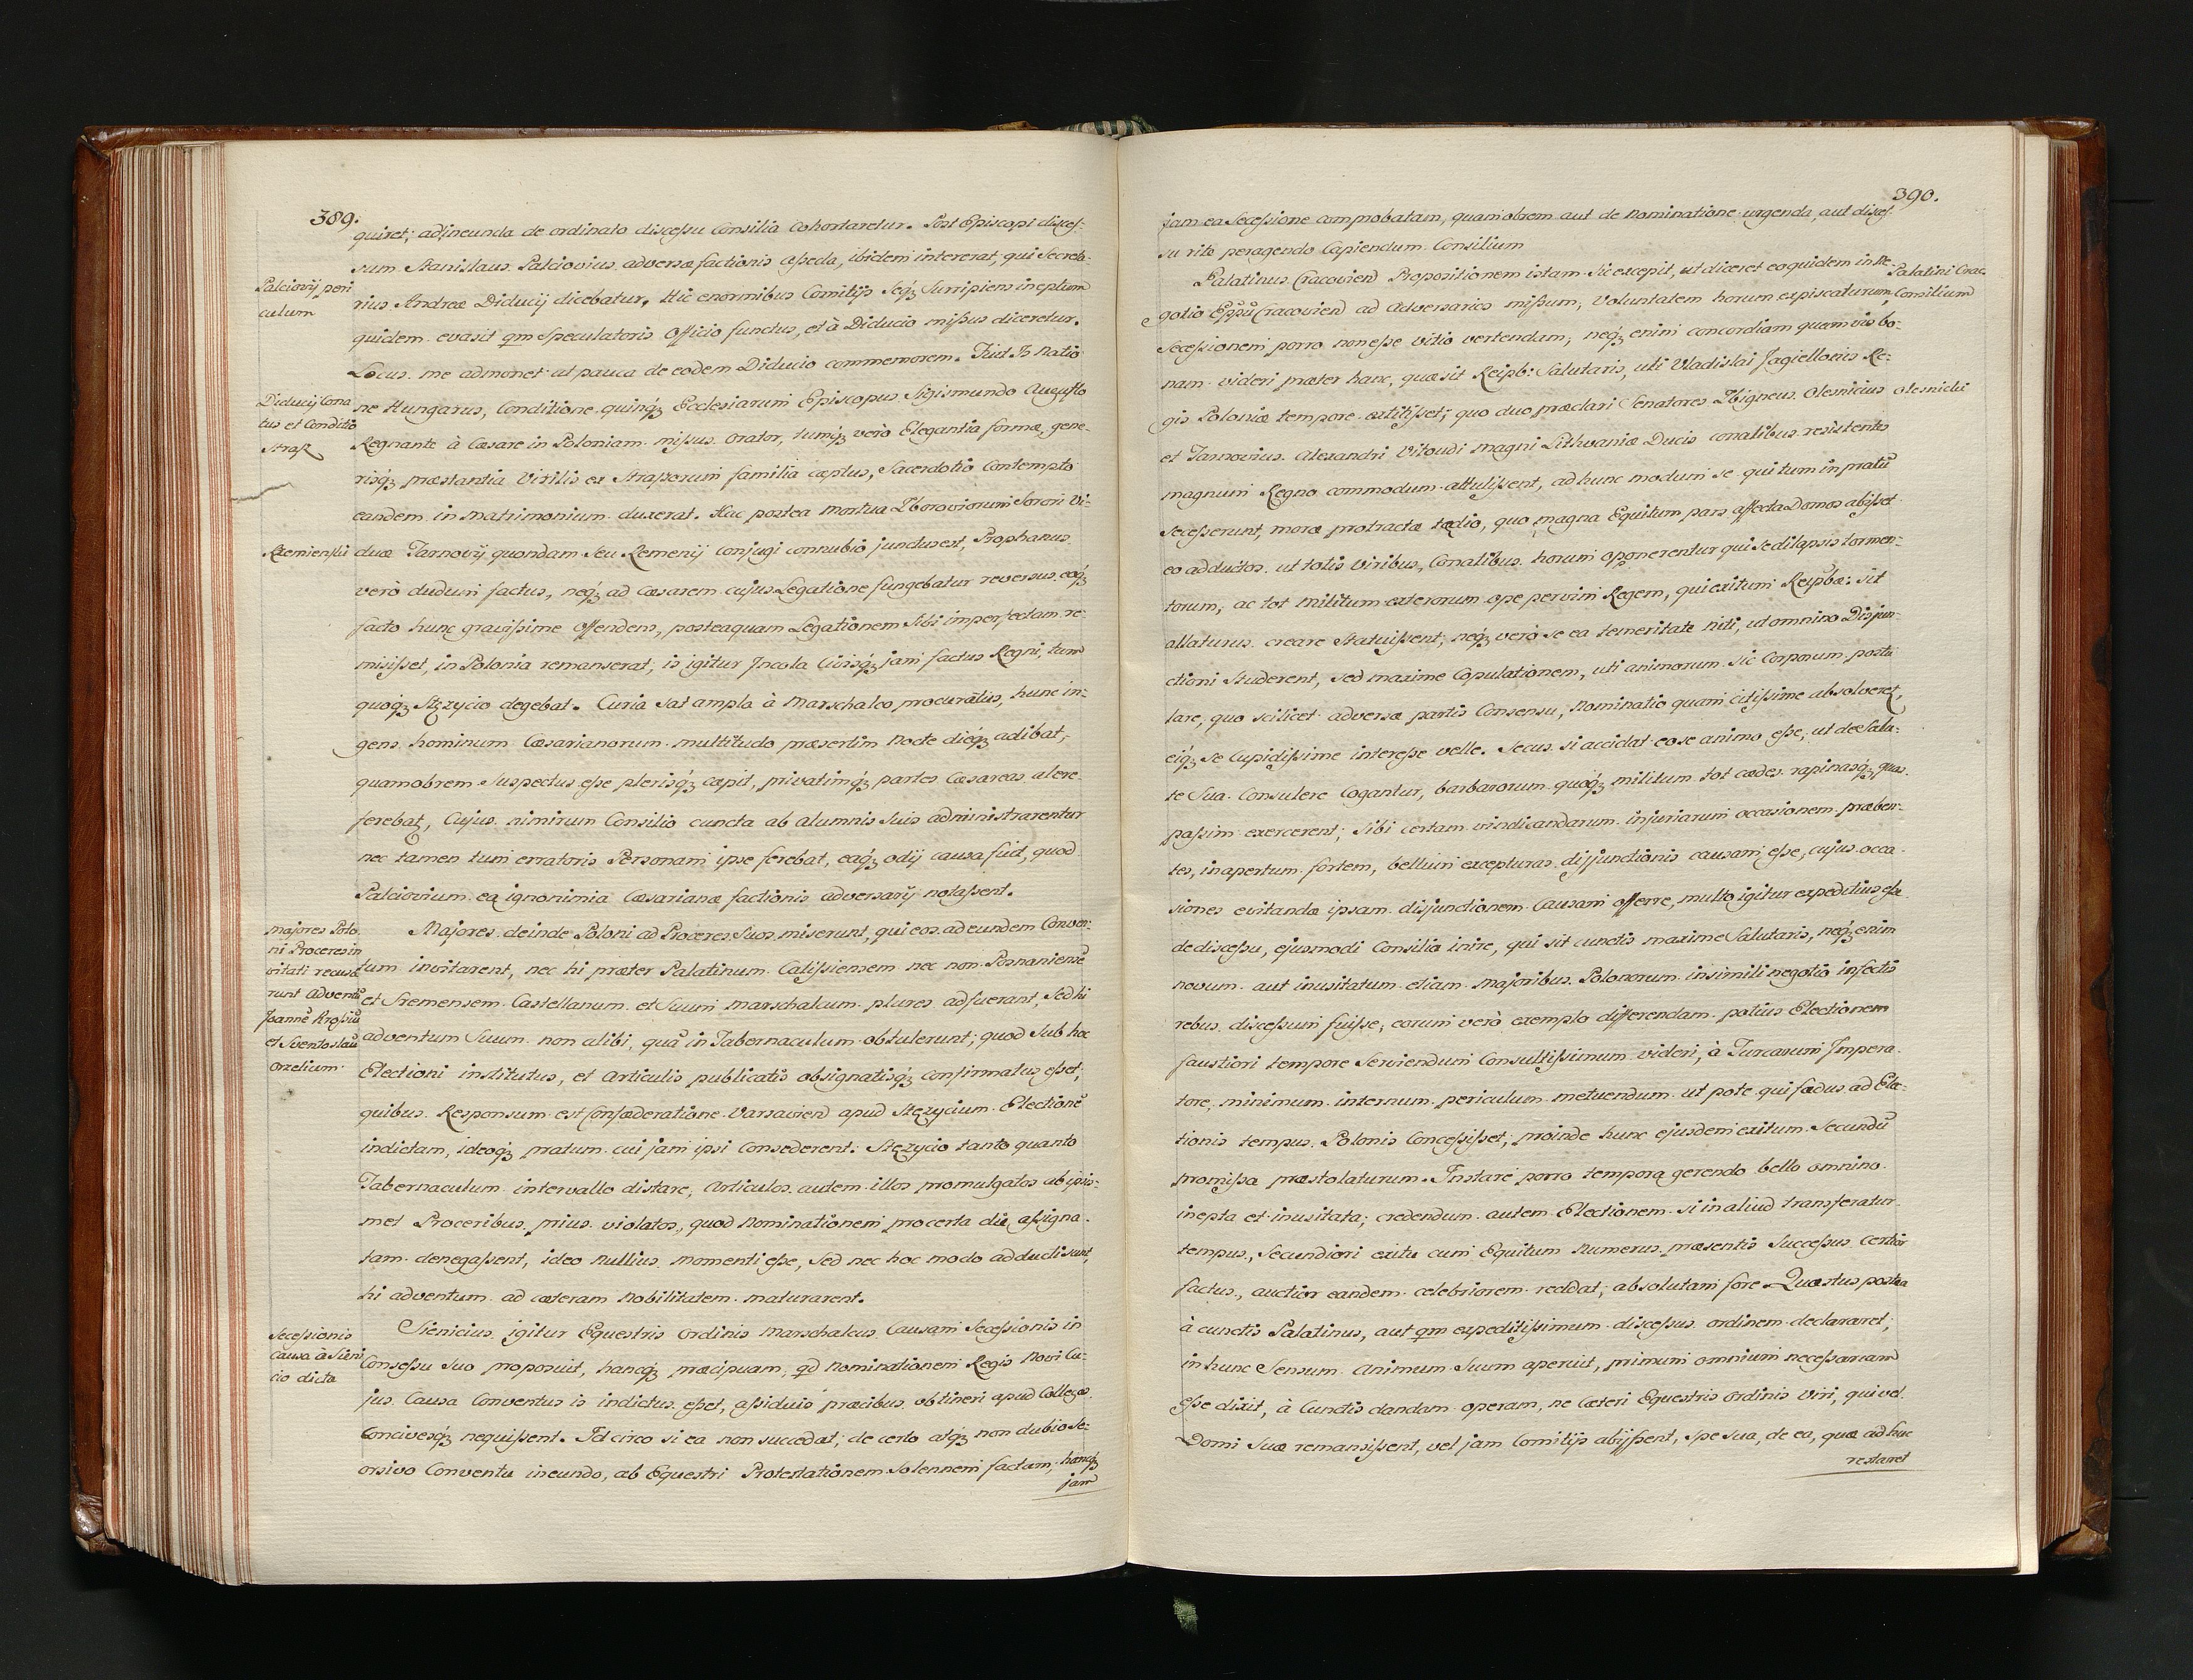 389.
quiret; ad ineunda de ordinato discessu Consilia Cohortaretur. Post Episcopi disces-
sum Stanislaus Palciovius adversæ factionis assecla, ibidem intererat, qui Secreta-
Palciovij peri
culum
rius Andreæ Diducij dicebatur. Hic enormibus Comitijs seq́ꝫ surripiens ineptum
quidem evasit qm Speculatoris Officio functus, et à Diducio missus diceretur.
Locus me admonet ut pauca de eodem Diducio commemorem. Fuit Is Natio
Diducij Cona
tus et Conditio
Straß
ne Hungarus, Conditione quinq́ꝫ Ecclesiarum Episcopus Sigismundo Augusto
Regnante à Cæsare in Poloniam missus Orator, tumq́ꝫ verò Elegantia formæ, gene-
risq́ꝫ præstantia Virilis ex Straßorum familia captus, Sacerdotio Contempto
eandem in Matrimonium duxerat. Hac postea mortua Zboroviorum Sorori Vi-
Kremienski
duæ Tarnovij quondam Seu Kemenij conjugi connubio junctus est, Prophanus
verò dudum factus, neq́ꝫ ad Cæsarem cujus Legatione fungebatur reversus eoq́ꝫ
facto hunc gravissime offendens, posteaquam Legationem Sibi imperfectam re-
misisset, in Polonia remanserat; is igitur Incola Civisq́ꝫ jam factus Regni, tum
quoq́ꝫ Stęzycio degebat. Curia sat ampla à Marschalco procuratus, hunc in-
gens hominum Cæsarianorum multitudo præsertim Nocte dieq́ꝫ adibat,
quamobrem Suspectus esse plerisq́ꝫ cæpit, privatimq́ꝫ partes Cæsareas alere
ferebat, Cujus nimirum Consilio cuncta ab alumnis Suis administrarentur
nec tamen tum erratoris Personam ipse ferebat, eaq́ꝫ odij causa fuit, quod
Palciovium ea ignonimia Cæsarianæ factionis adversarij notassent.
Majores Polo
ni Proceres in
vitati recusa
runt Adventũ
Joannẽ Krossiũ
et Sventoslaũ
Orzelium.
Majores deinde Poloni ad Proceres Suos miserunt, qui eos ad eundem Conven-
tum invitarent, nec hi præter Palatinum Calissiensem nec non Posnaniensẽ
et Sremensem Castellanum et Suum Marschalcum plures adfuerant, Sed hi
adventum Suum non alibi, quã in Tabernaculum obtulerunt; quod Sub hoc
Electioni institutus, et Articulis publicatis obsignatisq́ꝫ confirmatus esset;
quibus Responsum est Confæderatione Varsavien̄ apud Stęzycium Electionẽ
indictam, ideoq́ꝫ pratum cui jam ipsi Consederent: Stęzycio tanto quanto
Tabernaculum intervallo distare, Articulos autem illos promulgatos ab ipsis-
met Proceribus prius violatos, quod Nominationem pro certa die assigna-
tam denegassent, ideo Nullius momenti esse, Sed nec hoc modo adducti sunt,
hi adventum ad cæteram Nobilitatem maturarent.
Secessionis
causa à Sieni
cio dicta
Sienicius igitur Equestris Ordinis Marschalcus Causam Secessionis in
Consessu Suo proposuit, hancq́ꝫ præcipuam, qd Nominationem Regis Novi Cu-
jus Causa Conventus is indictus esset, assiduis præcibus obtineri apud Collegas
Concivesq́ꝫ nequissent. Idcirco si ea non succedat; de certo atq́ꝫ non dubio Se-
orsivo Conventu ineundo, ab Equestri Protestationem Solennem factam, hancq́ꝫ
jam
390.
jam ea Secessione comprobatam, quamobrem aut de Nominatione urgenda, aut disces-
su rite peragendo Capiendum Consilium
Palatini Crac
Consilium
Palatinus Cracovien̄ Propositionem istam Sic excepit, ut diceret eo quidem in Ne-
gotio Epp̃ũ Cracovien̄ ad Adversarios missum, Voluntatem horum expiscaturum,
Secessionem porro non esse Vitio vertendam, neq́ꝫ enim concordiam quamvis bo-
nam videri præter hanc, quæ sit Reipb: Salutaris, uti Vladislai Jagielloeiis Re-
gis Poloniæ tempore extitisset; quo duo præclari Senatores Zbigneus Olesnicius
Olesnicki
et Tarnovius Alexandri Vitoudi magni Lithvaniæ Ducis conatibus resistentes
magnum Regno commodum attulissent, ad hunc modum Se qui tum in pratũ
secesserunt, moræ protractæ tædio, quo magna Equitum pars affecta Domos abijsset
eo adductos ut totis Viribus, Conatibus horum opponerentur qui Se dilapsis tormen-
torum, ac tot Militum exterorum ope per vim Regem, qui exitum Reipbæ: sit
allaturus creare Statuissent; neq́ꝫ verò se ea temeritate niti, ut omnino Disjun-
ctioni Studerent, sed maxime Copulationem, uti animorum sic Corporum postu-
lare, quo scilicet adversæ partis Consensu, Nominatio quam citissime absolveret,
eiq́ꝫ se Cupidissime interesse velle. Secus si accidat eo se animo esse, ut de Salu-
te Sua Consulere Cogantur, barbarorum quoq́ꝫ militum tot cædes rapinasq́ꝫ quas
passim exercerent; Sibi certam vindicandarum injuriarum occasionem præben-
tes, in apertum fortem, bellum excepturas disjunctionis causam esse, cujus occa-
siones evitandæ ipsam disjunctionem Causam offerre, multo igitur expeditius esse
de discessu, ejusmodi Consilia inire, qui sit cunctis maxime Salutaris, neq́ꝫ enim
novum aut inusitatum etiam Majoribus Polonorum in simili negotio infectis
rebus discessum fuisse; eorum verò exemplo differendam potius Electionem
faustiori tempore Serviendum Consultissimum videri, à Turcarum Impera-
tore, minimum internum periculum metuendum ut pote qui fædus ad Elec-
tionis tempus Polonis Concessisset; proinde hunc ejusdem exitum Secundũ
promissa præstolaturum. Instare porro tempora gerendo bello omnino
inepta et inusitata; credendum autem Electionem si in aliud transferatur
tempus, Secundiori exitu cum Equitum Numerus præsentis Successus Certior
factus, auctior eandem celebriorem reddat; absolutam fore. Quæstus postea
à cunctis Palatinus, aut qm expeditissimum discessus ordinem declararet;
in hunc Sensum Animum Suum aperuit, primum omnium necessarium
esse dixit, à Cunctis dandam operam, ne Cæteri Equestris Ordinis Viri, qui vel
Domi Suæ remansissent, vel jam Comitijs abijssent, Spe sua, de ea, quæ ad huc
restaret